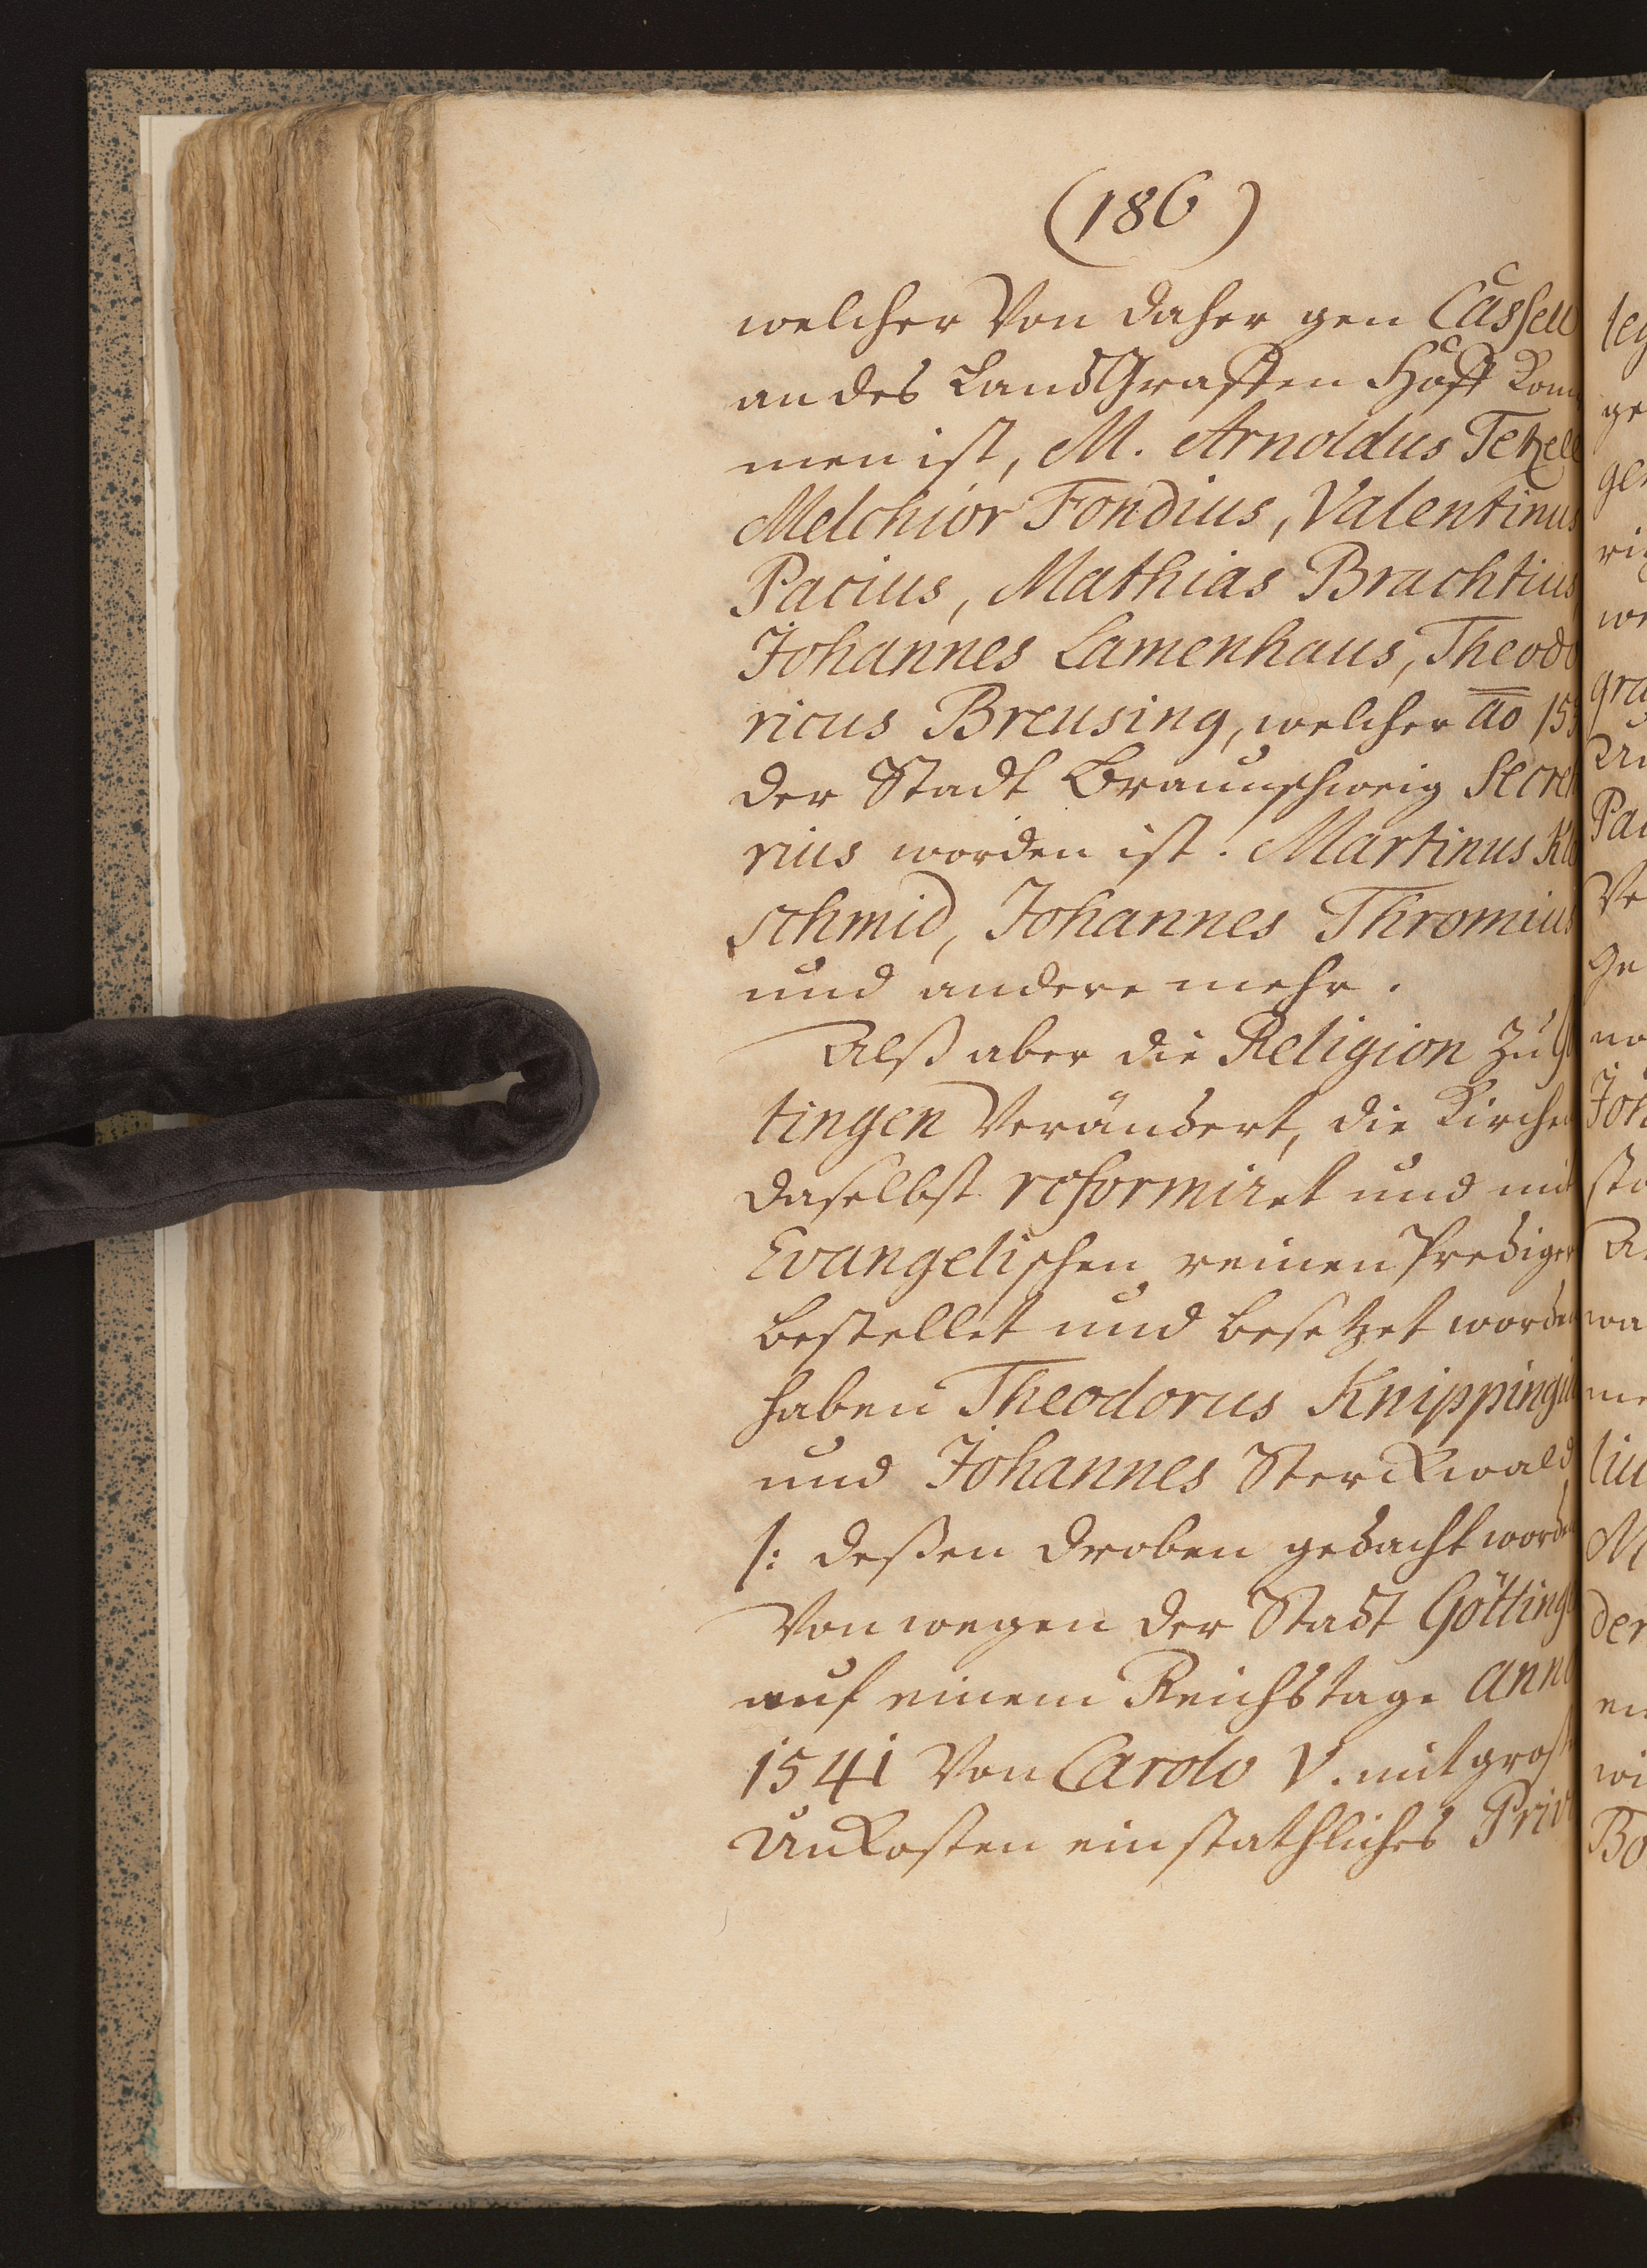 (186)
welcher Von daher gen Cassell
an des LandGraffen Hoff kom
men ist, M. Arnoldus Tetzell
Melchior Fondius, Valentinus
Pacius, Mathias Brachtius
Johannes Lamenhaus, Theodo
ricus Breusing, welcher ao 153
der Stadt Braunschweig Secret
rius worden ist. Martinus Kl
schmid, Johannes Thromius
und andere mehr.
Alß aber die Religion zu Gö
tingen Verändert, die Kirchen
daselbst reformiret und mit
Evangelischen reinen Prediger
bestellet und besetzet worden
haben Theodorus Knippingiu
und Johannes Sterckwald
/: deßen droben gedacht worden
Von wegen der Stadt Götting
auf einem Reichstage Anno
1541 Von Carolo V. mit groß
Unkosten ein stathliches Priv